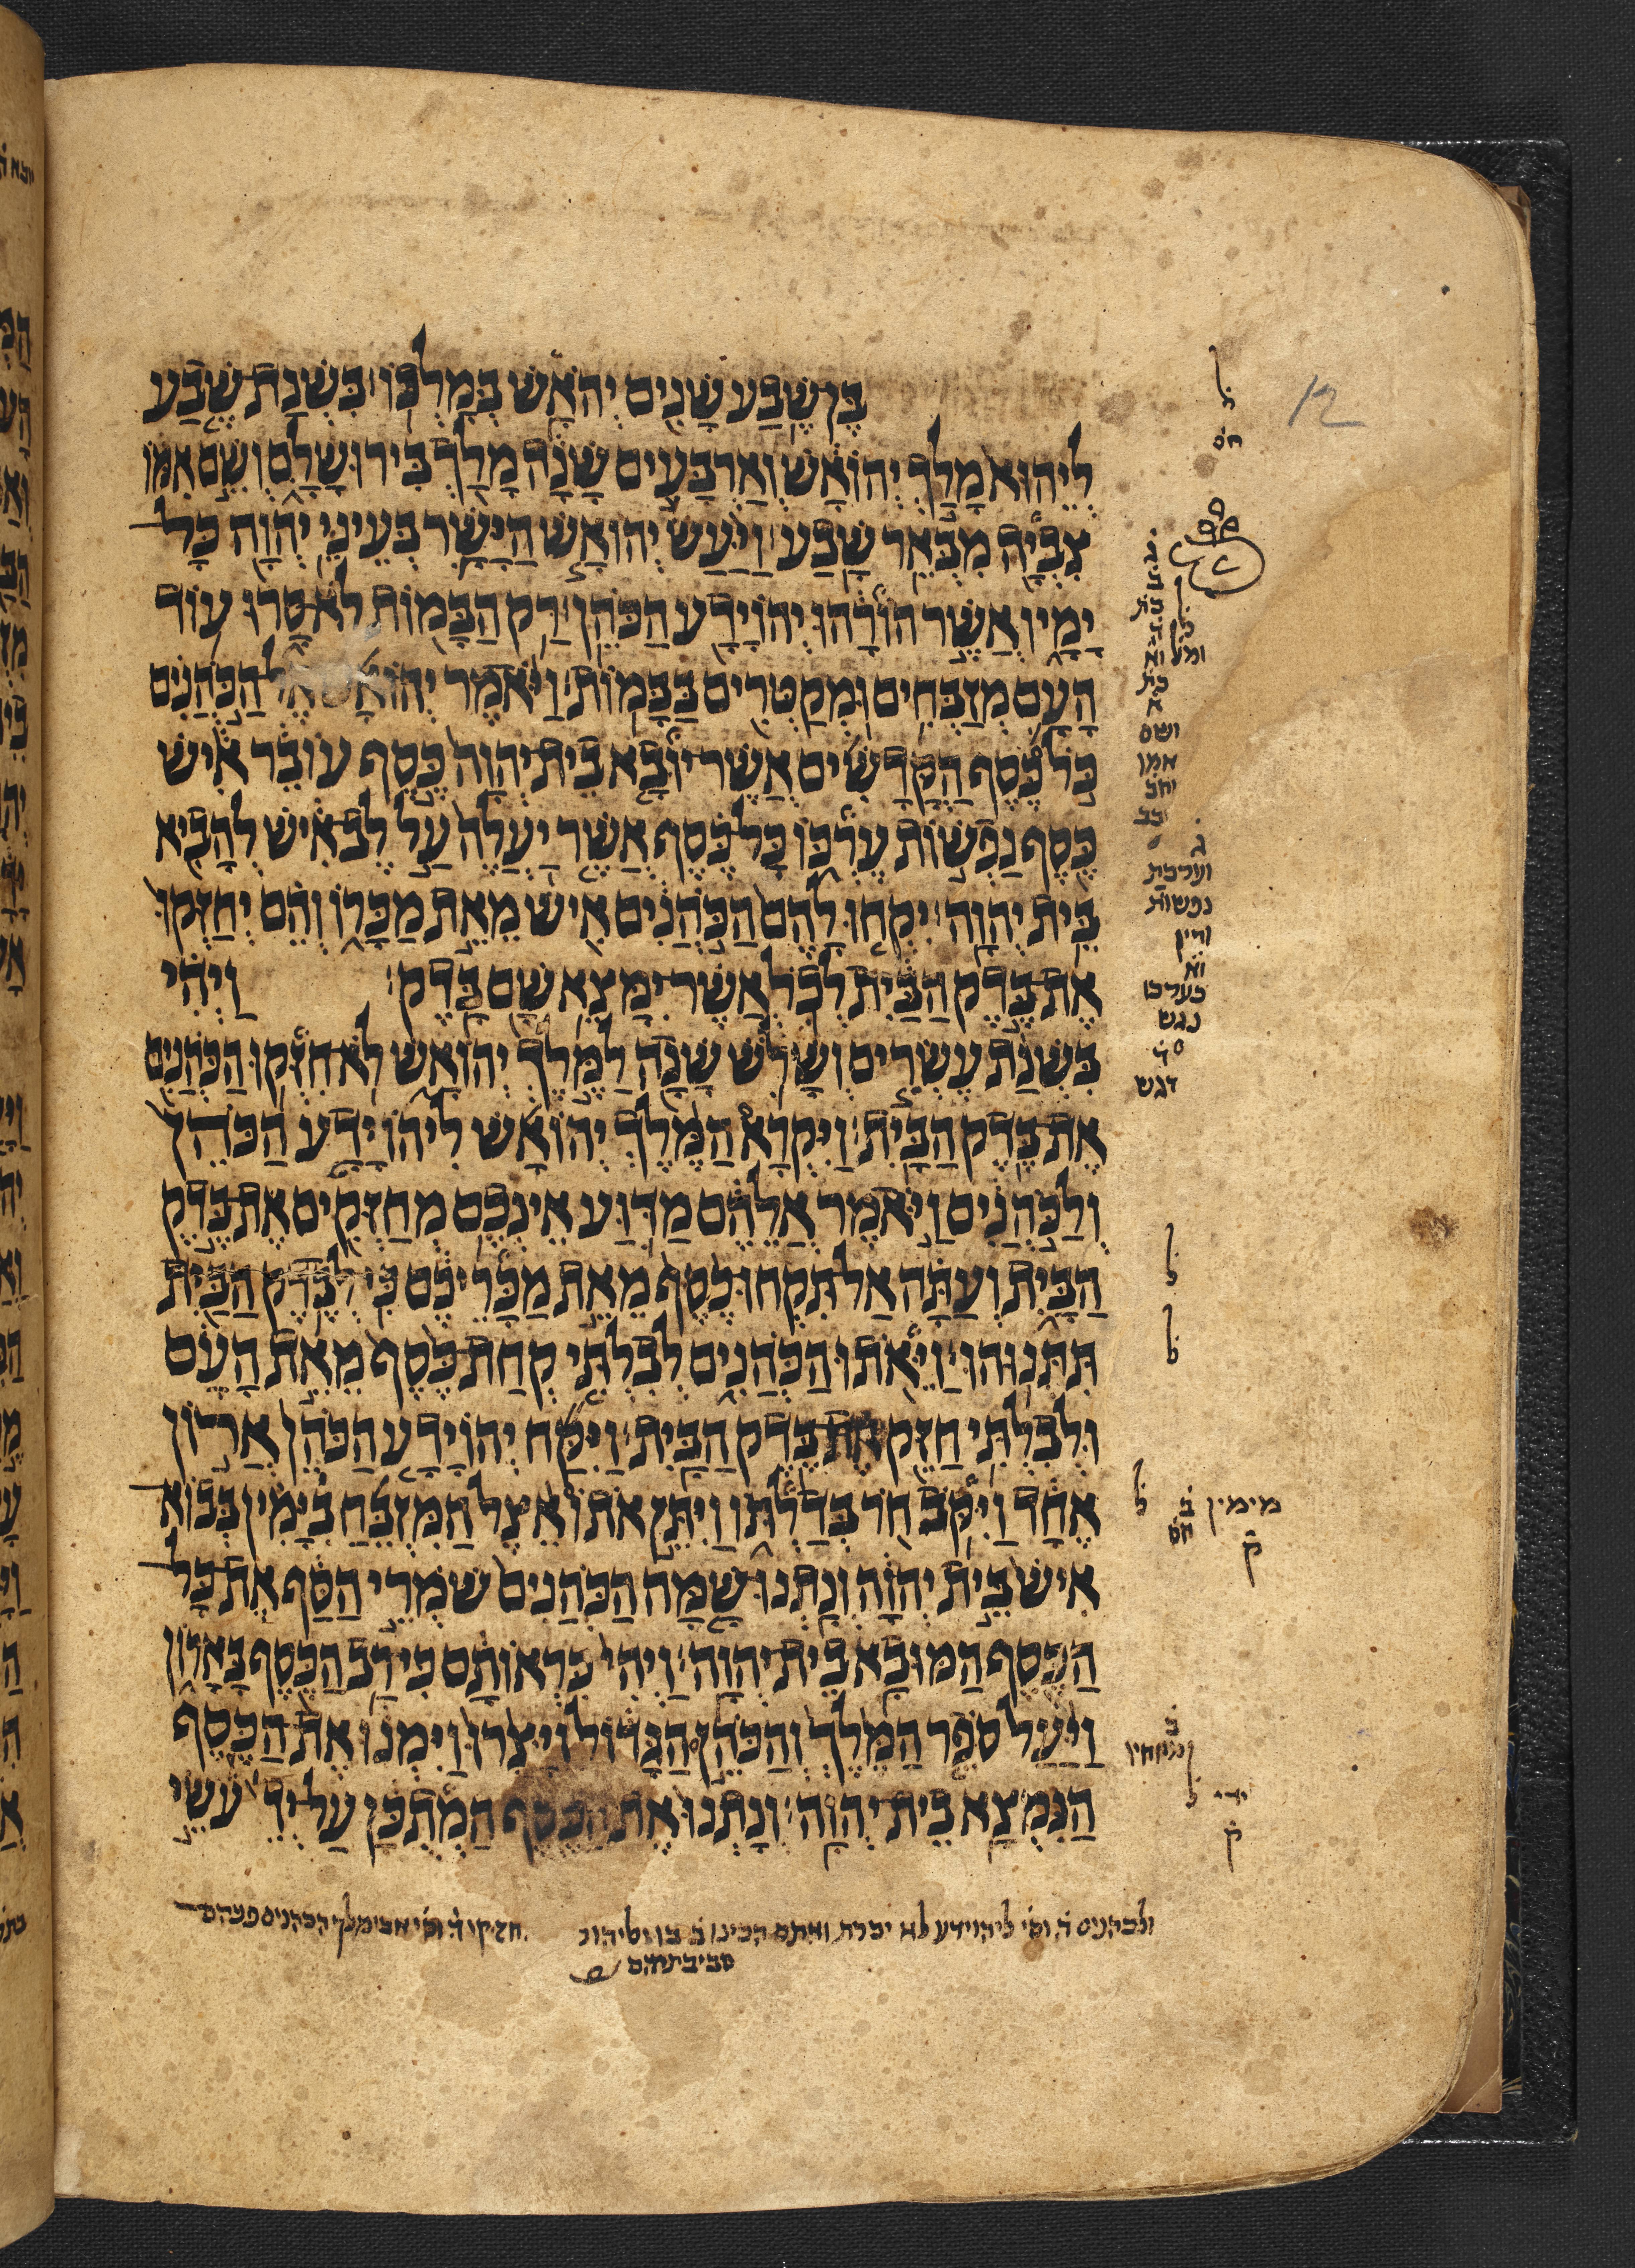 בֶּן־שֶׁבַע שָׁנִים יְהוֹאָשׁ בְּמָלְכוֹ׃ בִּשְׁנַת־שֶׁבַע
לְיֵהוּא מָלַךְ יְהוֹאָשׁ וְאַרְבָּעִים שָׁנָה מָלַךְ בִּירוּשָׁלָ͏ִם וְשֵׁם אִמּוֹ
צִבְיָה מִבְּאֵר שָׁבַע׃ וַיַּעַשׂ יְהוֹאָשׁ הַיָּשָׁר בְּעֵינֵי יְהוָה כָּל
יָמָיו אֲשֶׁר הוֹרָהוּ יְהוֹיָדָע הַכֹּהֵן׃ רַק הַבָּמוֹת לֹא־סָרוּ עוֹד
הָעָם מְזַבְּחִים וּמְקַטְּרִים בַּבָּמוֹת׃ וַיֹּאמֶר יְהוֹאָשׁ אֶל הַכֹּהֲנִים
כֹּל כֶּסֶף הַקֳּדָשִׁים אֲשֶׁר־יוּבָא בֵית־יְהוָה כֶּסֶף עוֹבֵר אִישׁ
כֶּסֶף נַפְשׁוֹת עֶרְכּוֹ כָּל־כֶּסֶף אֲשֶׁר יַעֲלֶה עַל לֶב־אִישׁ לְהָבִיא
בֵּית יְהוָה׃ יִקְחוּ לָהֶם הַכֹּהֲנִים אִישׁ מֵאֵת מַכָּרוֹ וְהֵם יְחַזְּקוּ
אֶת־בֶּדֶק הַבַּיִת לְכֹל אֲשֶׁר־יִמָּצֵא שָׁם בָּדֶק׃ וַיְהִי
בִּשְׁנַת עֶשְׂרִים וְשָׁלֹשׁ שָׁנָה לַמֶּלֶךְ יְהוֹאָשׁ לֹא־חִזְּקוּ הַכֹּהֲנִים
אֶת־בֶּדֶק הַבָּיִת׃ וַיִּקְרָא הַמֶּלֶךְ יְהוֹאָשׁ לִיהוֹיָדָע הַכֹּהֵן
וְלַכֹּהֲנִים וַיֹּאמֶר אֲלֵהֶם מַדּוּעַ אֵינְכֶם מְחַזְּקִים אֶת־בֶּדֶק
הַבָּיִת וְעַתָּה אַל־תִּקְחוּ־כֶסֶף מֵאֵת מַכָּרֵיכֶם כִּי־לְבֶדֶק הַבַּיִת
תִּתְּנֻוּהוּ׃ וַיֵּאֹתוּ הַכֹּהֲנִים לְבִלְתִּי קְחַת־כֶּסֶף מֵאֵת הָעָם
וּלְבִלְתִּי חַזֵּק אֶת־בֶּדֶק הַבָּיִת׃ וַיִּקַּח יְהוֹיָדָע הַכֹּהֵן אֲרוֹן
אֶחָד וַיִּקֹּב חֹר בְּדַלְתּוֹ וַיִּתֵּן אֹתוֹ אֵצֶל הַמִּזְבֵּחַ בְיָּמִין בְּבוֹא
אִישׁ בֵּית יְהוָה וְנָתְנוּ־שָׁמָּה הַכֹּהֲנִים שֹׁמְרֵי הַסַּף אֶת־כָּל
הַכֶּסֶף הַמּוּבָא בֵית־יְהוָה׃ וַיְהִי כִּרְאוֹתָם כִּי־רַב הַכֶּסֶף בָּאָרוֹן
וַיַּעַל סֹפֵר הַמֶּלֶךְ וְהַכֹּהֵן הַגָּדוֹל וַיָּצֻרוּ וַיִּמְנוּ אֶת־הַכֶּסֶף
הַנִּמְצָא בֵית־יְהוָה׃ וְנָתְנוּ אֶת־הַכֶּסֶף הַמְתֻכָּן עַל־יְדֵ עֹשֵׂי
12
ל
חס
ושם
אמו
וערכת
נפשות
כערכו
דגש
ל
ל
ל
מימין
ב
חס
ק
ב
ידי
ק
ולכהנים
ליהוידע לא יכרת
חזקו
סביבתיהם